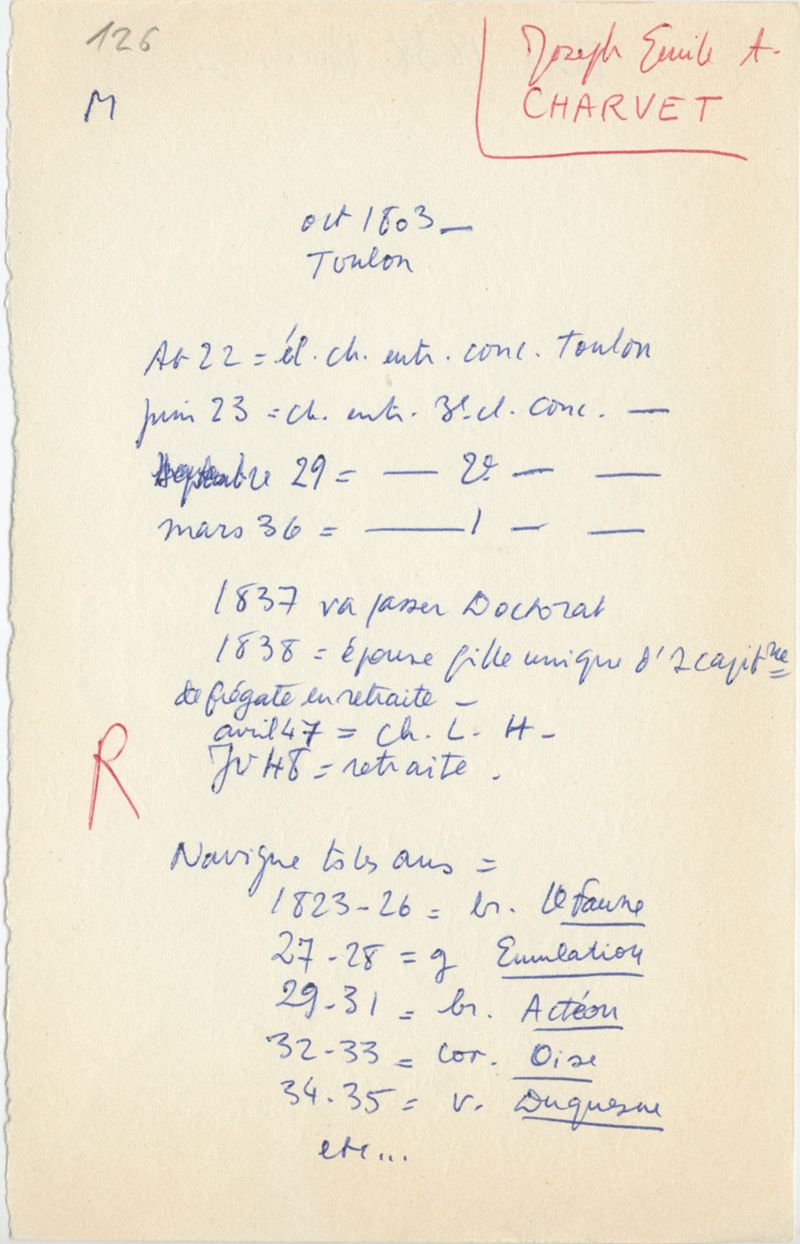 126
M
Joseph Emile A.
CHARVET
oct 1803 —
Toulon
At 22 = él. ch. entr. conc. Toulon
juin 23 = ch. entr. 3e cl. conc. —
29 = — 2e — —
mars 36 = — 1 — —
1837 va passer Doctorat
1838 = épouse fille unique d' 1 capitne
de frégate en retraite —
avril 47 = ch. L. H —
JV 48 = retraite .
R
Navigue ts les ans =
1823-26 = br. le Faune
27-28 = g Emulation
29-31 = br. Actéon
32-33 = cor. Oise
34-35 = v. Duquesne
etc...